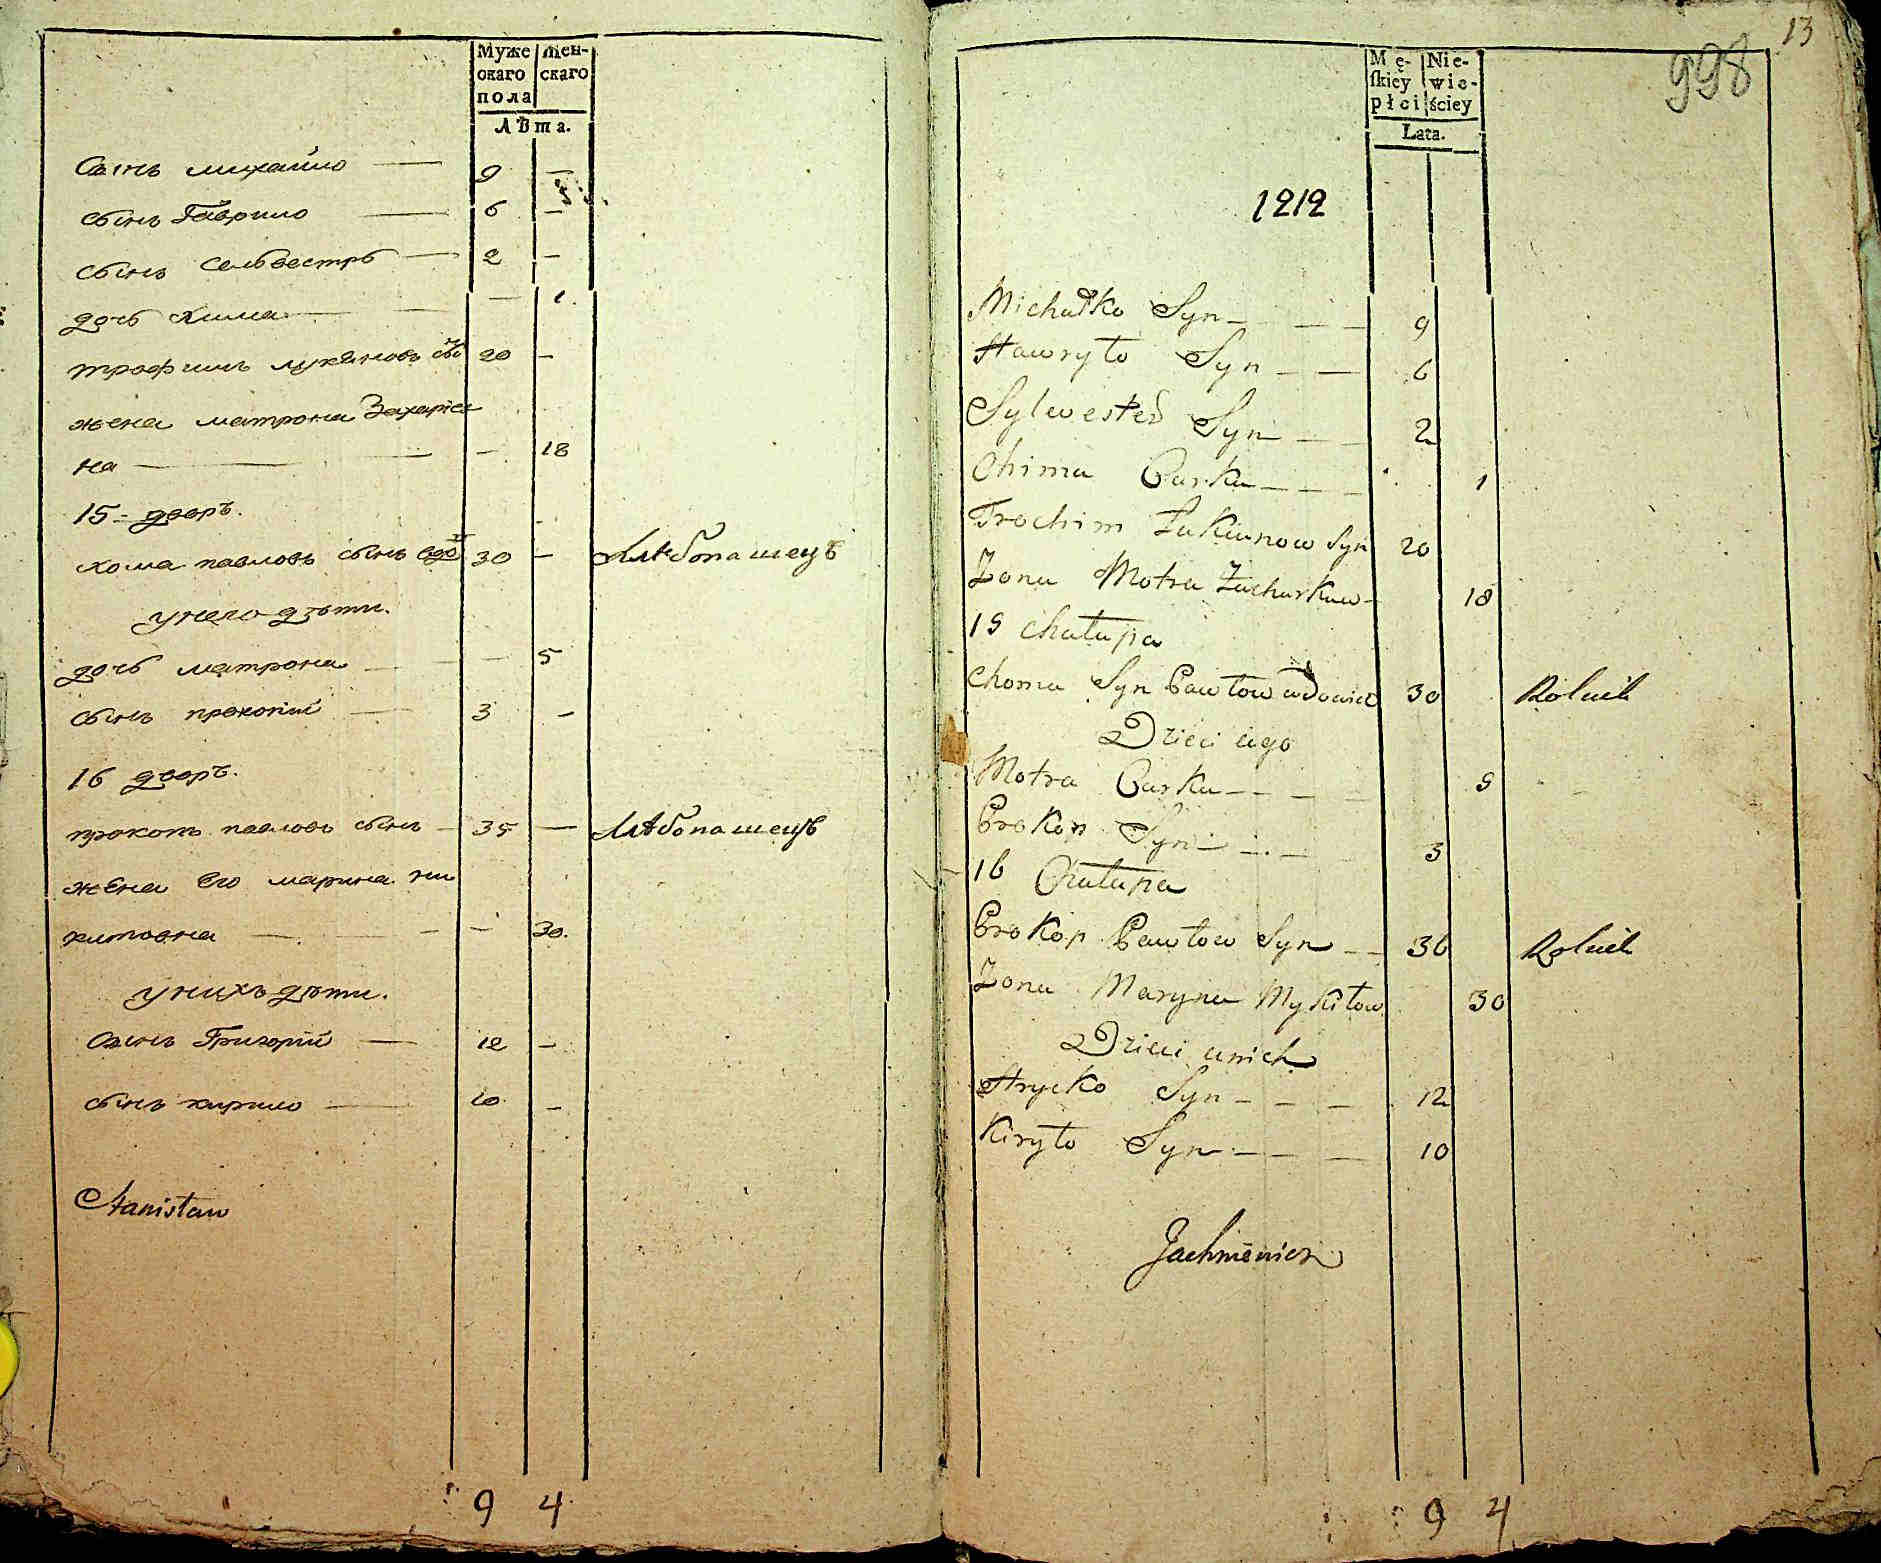 Муже
скаго
пола
Жен-
скаго
Лѣта.
Сынъ михайло — 9 —
сынъ Гаврило — 6 —
сынъ селвестръ — 2 —
дочь хима — — 1
трофимъ лукяновъ снъ 20 —
жена матрона Захаріев
на — — 18
15 = дворъ.
хома павловъ сынъ вдо 30 — хлѣбопашецъ
унего дѣти.
дочь матрона — — 5
сынъ прокопій — 3 —
16 дворъ.
прокопъ павловъ сынъ — 35 — хлѣбопашецъ
жена его марина ни
китовна — — 30.
унихъ дѣти.
сынъ Григорій — 12 —
сынъ кирило — 10 —
Stanisław
9 4
13
998
Mę-
skiey
płci
Nie-
wie-
ściey
Lata.
1212
Michałko Syn — — 9
Hawryło Syn — — 6
Sylwester Syn — — 2
Chima Curka — — — 1
Trochim Łukianow Syn 20
Żona Motra Zacharkow — 18
15 Chałupa
Choma Syn Pawłow wdowiec 30 Rolnik
Dzieci uego
Motra Curka — — — 5
Prokop Syn — — — 3
16 Chałupa
Prokop Pawłow Syn — — 36 Rolnik
Żona Maryna Mykitow 30
Dzieci unich
Hrycko Syn — — — 12
Kiryło Syn — — — 10
Jachimowicz
9 4